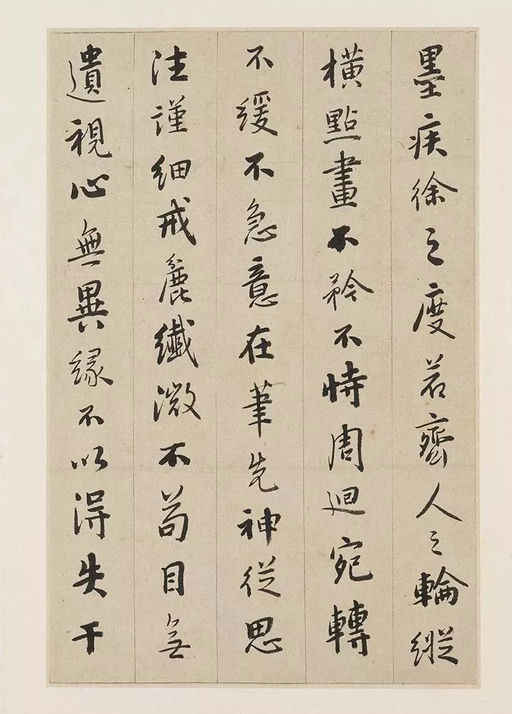 墨疾徐之度若齊人之輪縱
橫點畫不矜不恃周迴宛轉
不緩不急意在筆先神從思
注謹細戒麁纖微不茍目無
遺視心無異緣不以得失干